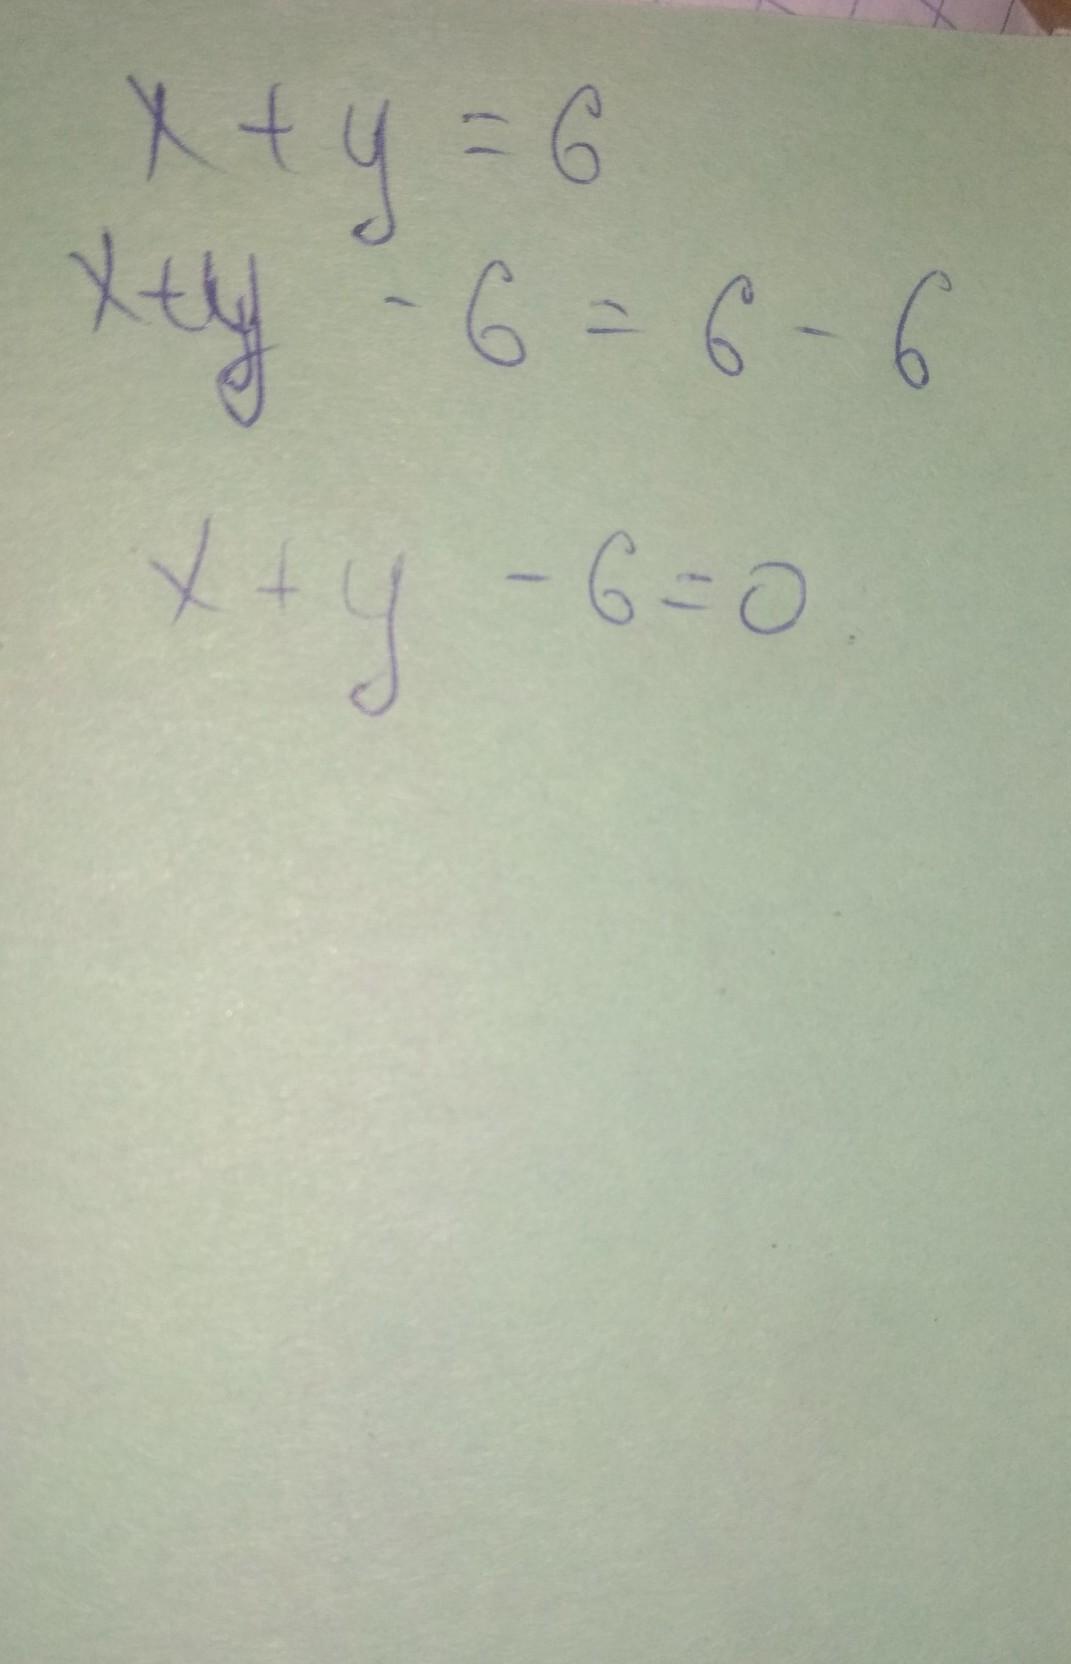 x + y = 6
x + y - 6 = 6 - 6
x + y - 6 = 0